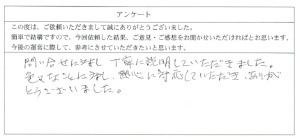 アンケート
この度は、ご依頼いただきまして誠にありがとうございました。
簡単で結構ですので、今回依頼した結果、ご意見・ご感想をお聞かせいただければとお思います。
今後の運営に際して、参考にさせていただきたいと思います。
問い合せに対し、丁寧に説明していただきました。
なことに対し、熱心に対応していただき、ありが
とうございました。